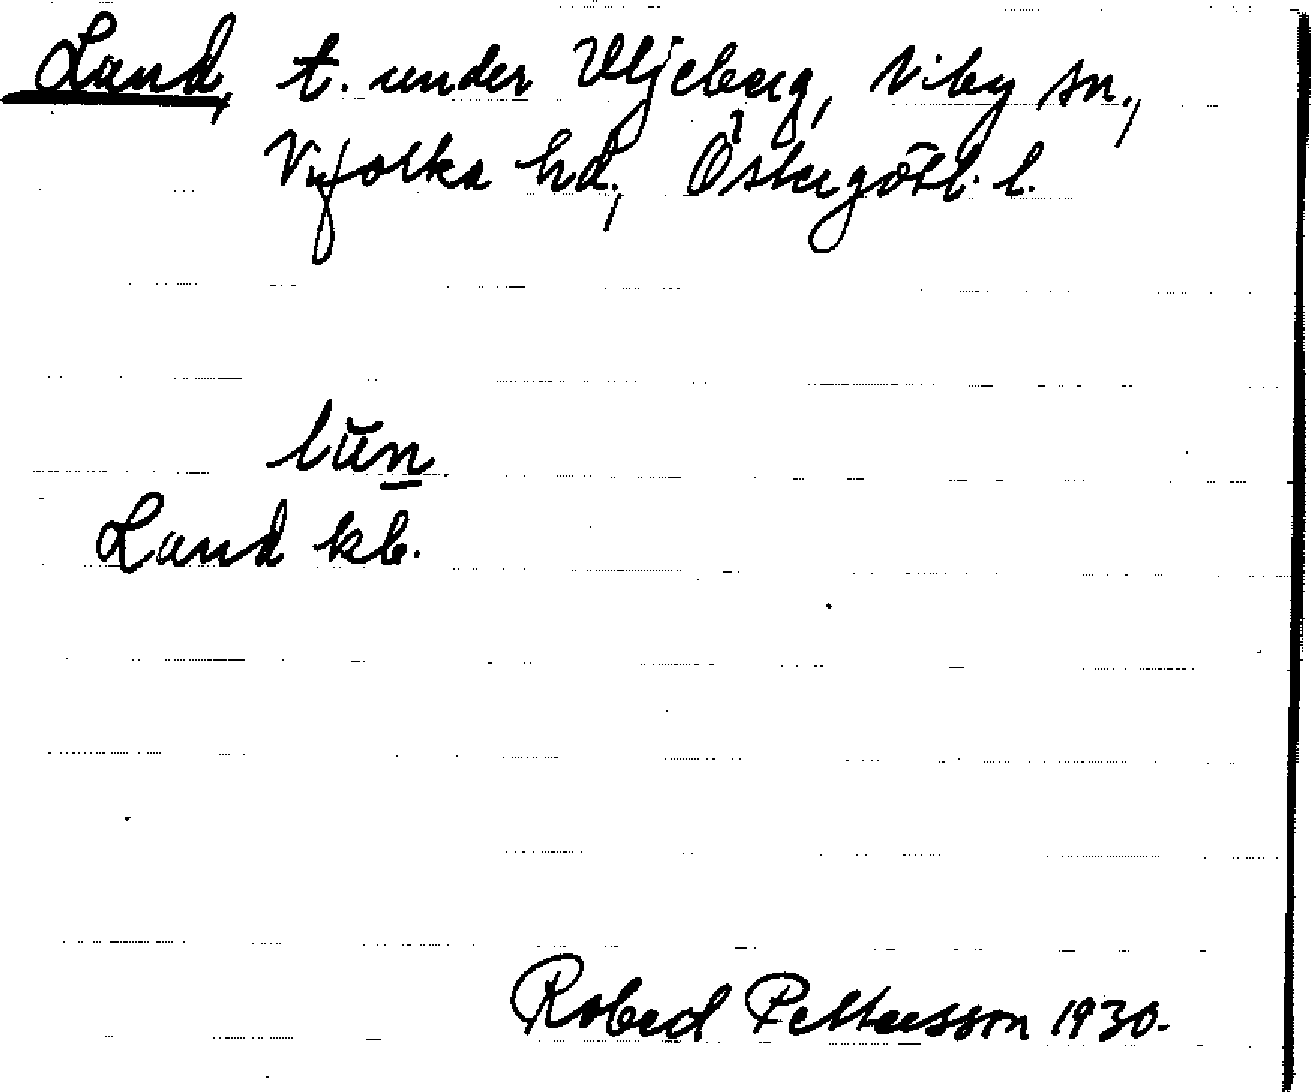 Land, t. under Uljeberg, Viby sn.,
Vifolka hd., Östergötl. l.
lŭn
Land kb.
Robert Pettersson 1930.